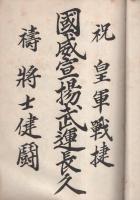 祝皇軍戰捷
國威宣揚武運長久
禱將士健鬪